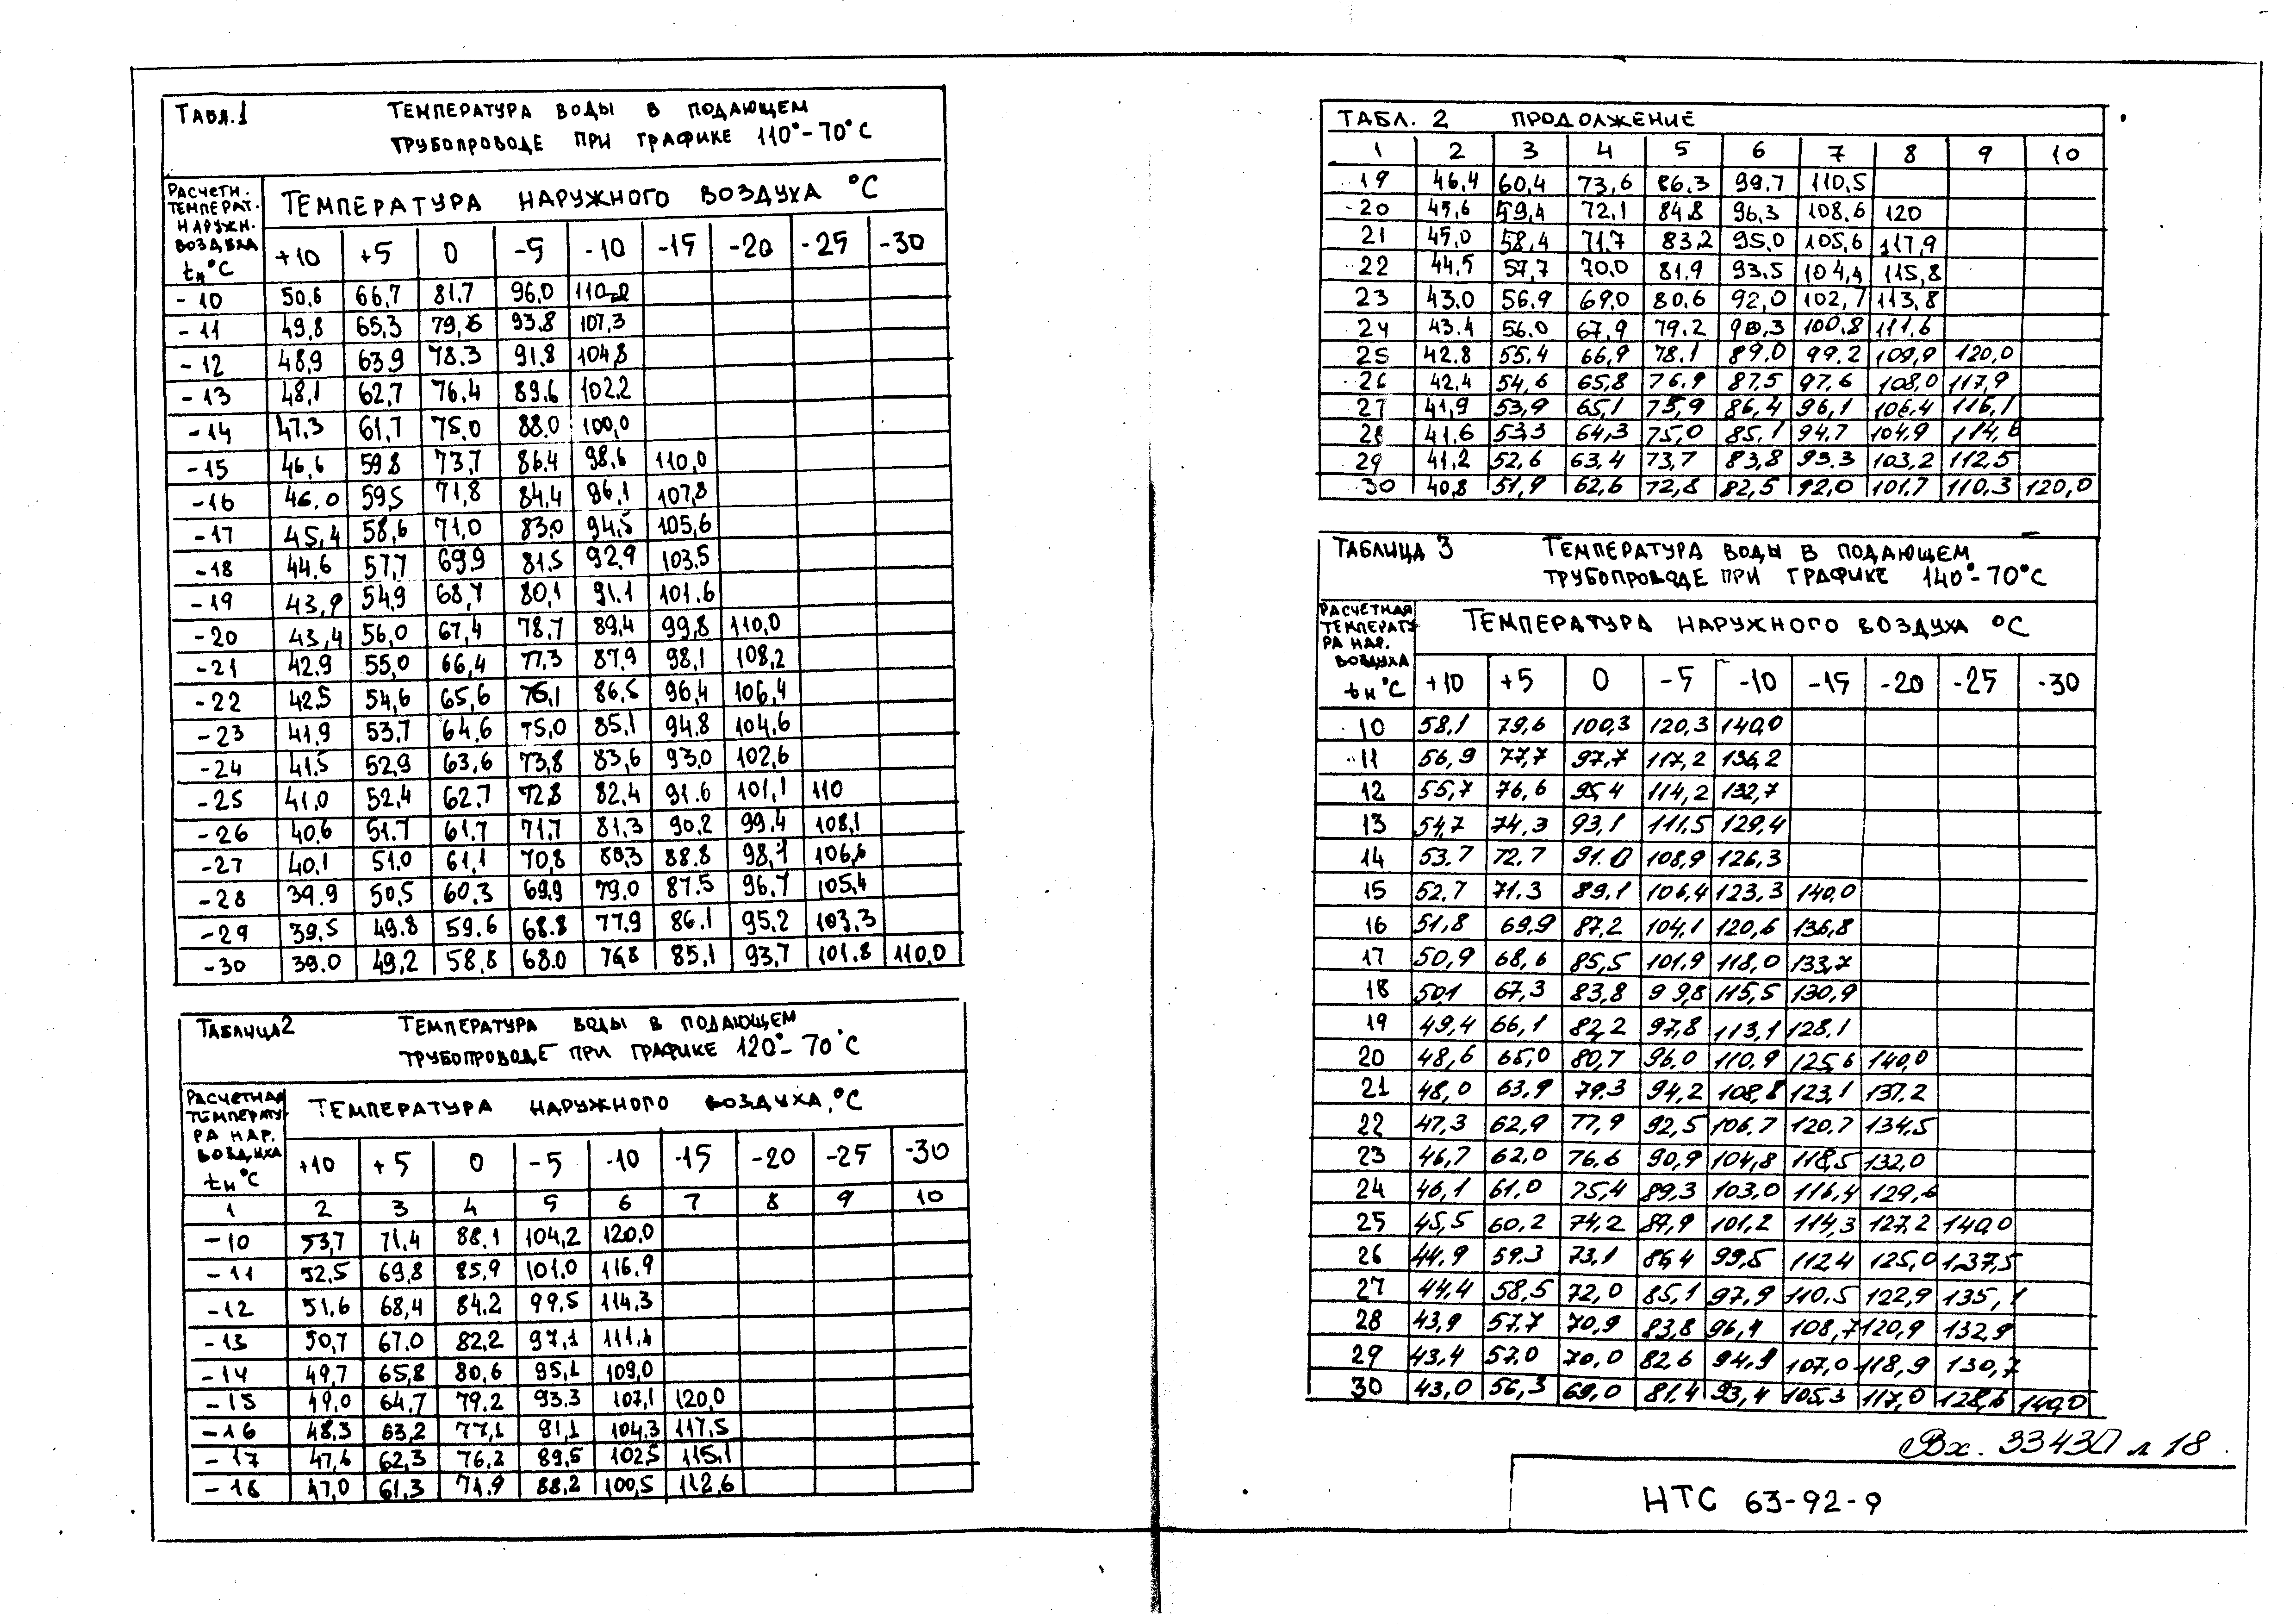 ТАБЛ.1 ТЕМПЕРАТУРА ВОДЫ В ПОДАЮЩЕМ
ТРУБОПРОВОДЕ ПРИ ГРАФИКЕ 110°-70°С
РАСЧЕТН.
ТЕМПЕРАТ.
НАРУЖН.
ВОЗДУХА
tн°С
ТЕМПЕРАТУРА НАРУЖНОГО ВОЗДУХА °С
+10 +5 0 -5 -10 -15 -20 -25 -30
-10 50,6 66,7 81.7 96,0 110,0
-11 49,8 65,3 79,6 93.8 107,3
-12 48,9 63,9 78.3 91.8 104,8
-13 48,1 62,7 76.4 89.6 102.2
-14 47,3 61,7 75,0 88.0 100,0
-15 46,6 59.8 73,7 86.4 98,6 110,0
-16 46.0 59,5 71,8 84,4 96,1 107,8
-17 45,4 58,6 71,0 83,0 94,5 105,6
-18 44,6 57,7 69,9 81.5 92,9 103.5
-19 43,9 54,9 68,7 80,1 91.1 101.6
-20 43,4 56,0 67,4 78.7 89,4 99,8 110,0
-21 42,9 55,0 66,4 77,3 87,9 98,1 108,2
-22 42,5 54,6 65,6 76,1 86,5 96,4 106,4
-23 41,9 53,7 64,6 75,0 85,1 94.8 104,6
-24 41,5 52,9 63,6 73,8 83,6 93,0 102,6
-25 41,0 52,4 62,7 72,8 82,4 91.6 101,1 110
-26 40,6 51.7 61,7 71,7 81,3 90,2 99,4 108,1
-27 40,1 51,0 61,1 70,8 80,3 88.8 98,1 106,6
-28 39.9 50,5 60,3 69,9 79.0 87.5 96,7 105,4
-29 39,5 49.8 59.6 68.8 77,9 86.1 95,2 103,3
-30 39.0 49,2 58,8 68.0 76,8 85,1 93,7 101.8 110,0
ТАБЛИЦА 2 ТЕМПЕРАТУРА ВОДЫ В ПОДАЮЩЕМ
ТРУБОПРОВОДЕ ПРИ ГРАФИКЕ 120°-70°С
РАСЧЕТНАЯ
ТЕМПЕРАТУ-
РА НАР.
ВОЗДУХА
tн°С
ТЕМПЕРАТУРА НАРУЖНОГО ВОЗДУХА,°С
+10 +5 0 -5 -10 -15 -20 -25 -30
1 2 3 4 5 6 7 8 9 10
-10 53,7 71,4 88,1 104,2 120,0
-11 52,5 69,8 85,9 101,0 116,9
-12 51,6 68,4 84.2 99,5 114,3
-13 50,7 67.0 82,2 97,1 111,4
-14 49,7 65,8 80,6 95,1 109,0
-15 49,0 64,7 79,2 93.3 107,1 120,0
-16 48,3 63,2 77,1 91,1 104,3 117,5
-17 47,6 62,3 76.2 89,5 102,5 115,1
-18 47,0 61,3 74,9 88,2 100,5 112,6
ТАБЛ. 2 ПРОДОЛЖЕНИЕ
1 2 3 4 5 6 7 8 9 10
19 46,4 60,4 73,6 86,3 99,7 110,5
20 45,6 59,4 72,1 84.8 96,3 108,6 120
21 45,0 58,4 71,7 83,2 95,0 105,6 117,9
22 44,5 57,7 70,0 81,9 93,5 104,4 115,8
23 43.0 56,9 69,0 80,6 92,0 102,7 113,8
24 43.4 56.0 67,9 79.2 90,3 100,8 111,6
25 42.8 55,4 66,9 78.1 89,0 99.2 109,9 120,0
26 42,4 54,6 65,8 76,9 87,5 97,6 108,0 117,9
27 41,9 53,9 65,1 75,9 86,4 96,1 106,4 116,1
28 41,6 53,3 64,3 75,0 85,1 94,7 104,9 114,6
29 41,2 52,6 63,4 73,7 83,8 93.3 103,2 112,5
30 40,8 51,9 62,6 72,8 82,5 92,0 101,7 110.3 120,0
ТАБЛИЦА 3 ТЕМПЕРАТУРА ВОДЫ В ПОДАЮЩЕМ
ТРУБОПРОВОДЕ ПРИ ГРАФИКЕ 140°-70°С
РАСЧЕТНАЯ
ТЕМПЕРАТУ
РА НАР.
ВОЗДУХА
tн°С
ТЕМПЕРАТУРА НАРУЖНОГО ВОЗДУХА °С
+10 +5 0 -5 -10 -15 -20 -25 -30
10 58,1 79,6 100,3 120,3 140,0
11 56,9 77,7 97,7 117,2 136,2
12 55,7 76,6 95,4 114,2 132,7
13 54,7 74,3 93,1 111,5 129,4
14 53.7 72,7 91.0 108,9 126,3
15 52.7 71.3 89,1 106,4 123,3 140,0
16 51,8 69,9 87,2 104,1 120,6 136,8
17 50,9 68,6 85,5 101,9 118,0 133,7
18 50,1 67,3 83,8 99,8 115,5 130,9
19 49,4 66,1 82,2 97,8 113,1 128,1
20 48,6 65,0 80,7 96,0 110,9 125,6 140,0
21 48,0 63,9 79,3 94,2 108,8 123,1 137.2
22 47,3 62,9 77,9 92,5 106,7 120,7 134,5
23 46,7 62,0 76,6 90,9 104,8 118,5 132,0
24 46,1 61,0 75,4 89,3 103,0 116,4 129,6
25 45,5 60,2 74,2 87,9 101,2 114,3 127,2 140,0
26 44,9 59.3 73,1 86,4 99,5 112,4 125,0 137,5
27 44,4 58,5 72,0 85,1 97,9 110,5 122,9 135,1
28 43,9 57,7 70,9 83,8 96,4 108,7 120,9 132,9
29 43,4 57,0 70,0 82,6 94,9 107,0 118,9 130,7
30 43,0 56,3 69,0 81,4 93,4 105,3 117,0 128,6 140,0
Вх. 33430 л 18
НТС 63-92-9